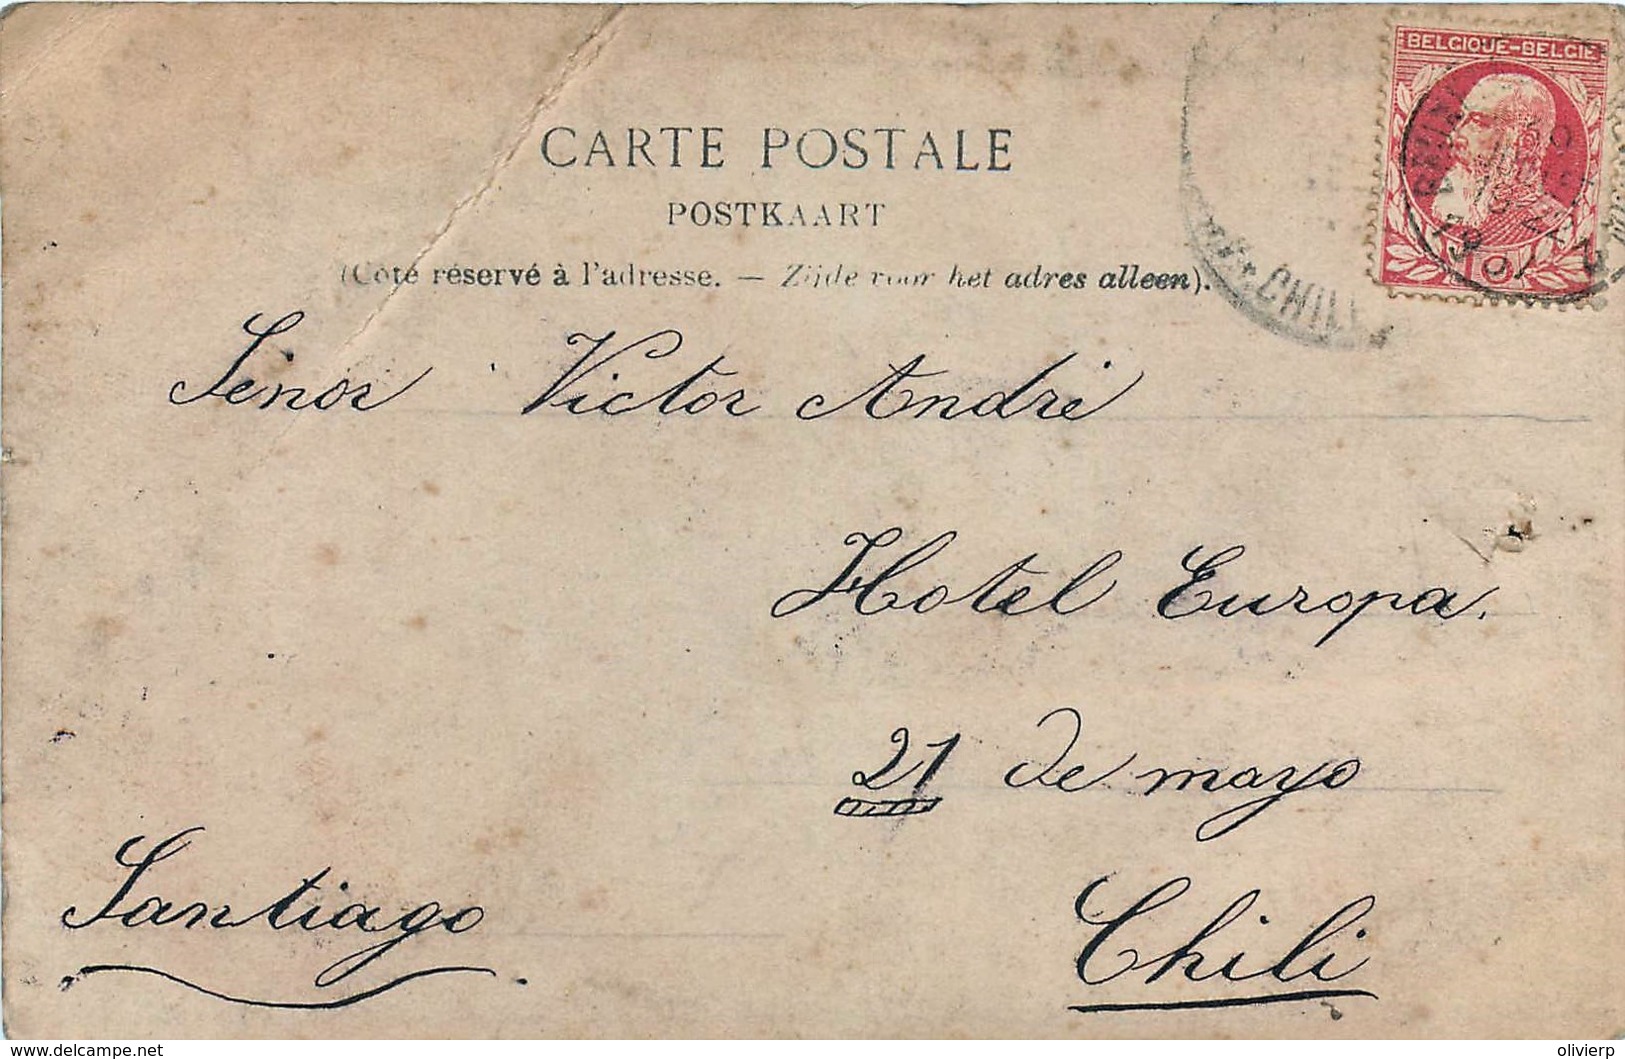 BELGIQUE-BELGIE
CARTE POSTALE
POSTKAART
(Côté réservé à l'adresse. — Zijde voor het adres alleen).
CHILE
10
Señor Victor André
Hotel Europa.
21 de mayo
Santiago
Chili
www.delcampe.net
olivierp